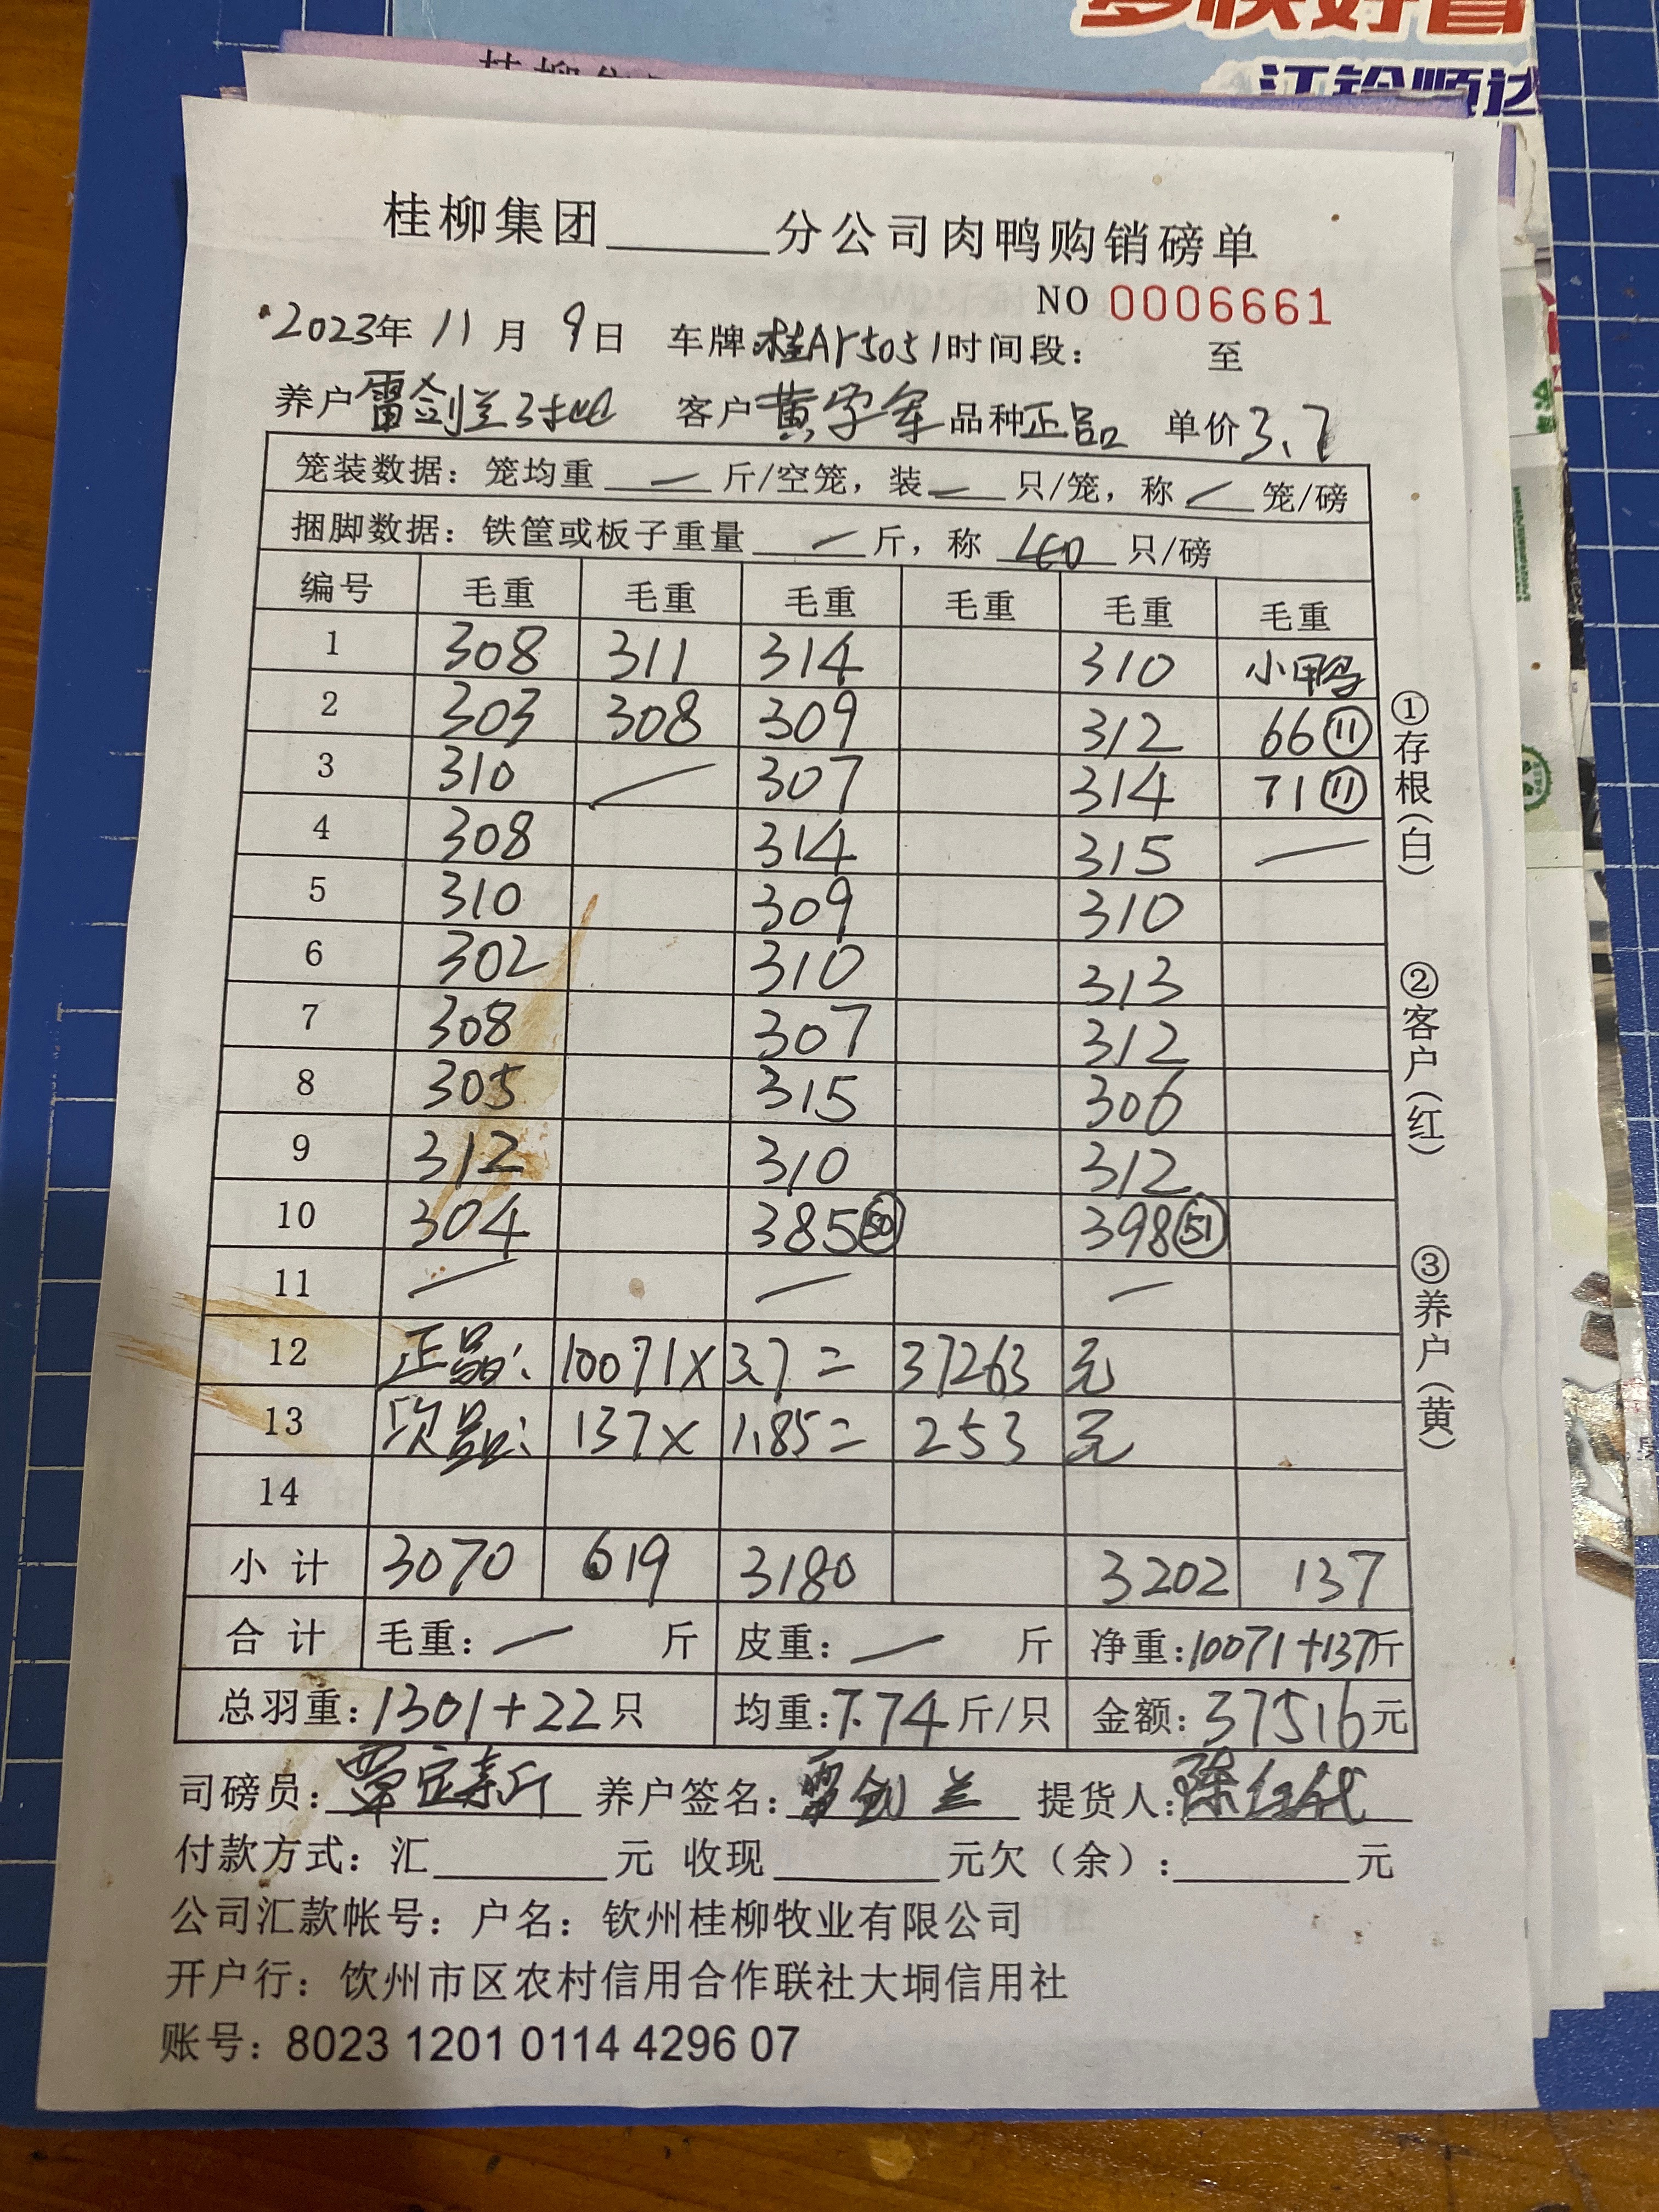 多快好省
江铃顺达
桂柳集团______分公司肉鸭购销磅单
NO 0006661
2023年 11月 9日 车牌:桂AY5051 时间段: 至
养户 雷剑兰3批 客户 黄学军 品种 正品 单价 3.7
笼装数据: 笼均重 — 斤/空笼, 装 — 只/笼, 称 — 笼/磅
捆脚数据: 铁筐或板子重量 — 斤, 称 40 只/磅
编号 毛重 毛重 毛重 毛重 毛重 毛重
1 308 311 314 310 小鸭
2 303 308 309 312 66⑪
3 310 — 307 314 71⑪
4 308 314 315 —
5 310 309 310
6 302 310 313
7 308 307 312
8 305 315 306
9 312 310 312
10 304 385㊿ 398(51)
11 — — —
12 正品: 10071× 3.7= 37263 元
13 次品: 137× 1.85= 253 元
14
小计 3070 619 3180 3202 137
合计 毛重: — 斤 皮重: — 斤 净重:10071+137斤
总羽重:1301+22只 均重:7.74斤/只 金额:37516元
司磅员: 养户签名:雷剑兰 提货人:
付款方式: 汇______元 收现______元欠(余):______元
公司汇款帐号: 户名: 钦州桂柳牧业有限公司
开户行: 饮州市区农村信用合作联社大垌信用社
账号: 8023 1201 0114 4296 07
①存根(白)
②客户(红)
③养户(黄)